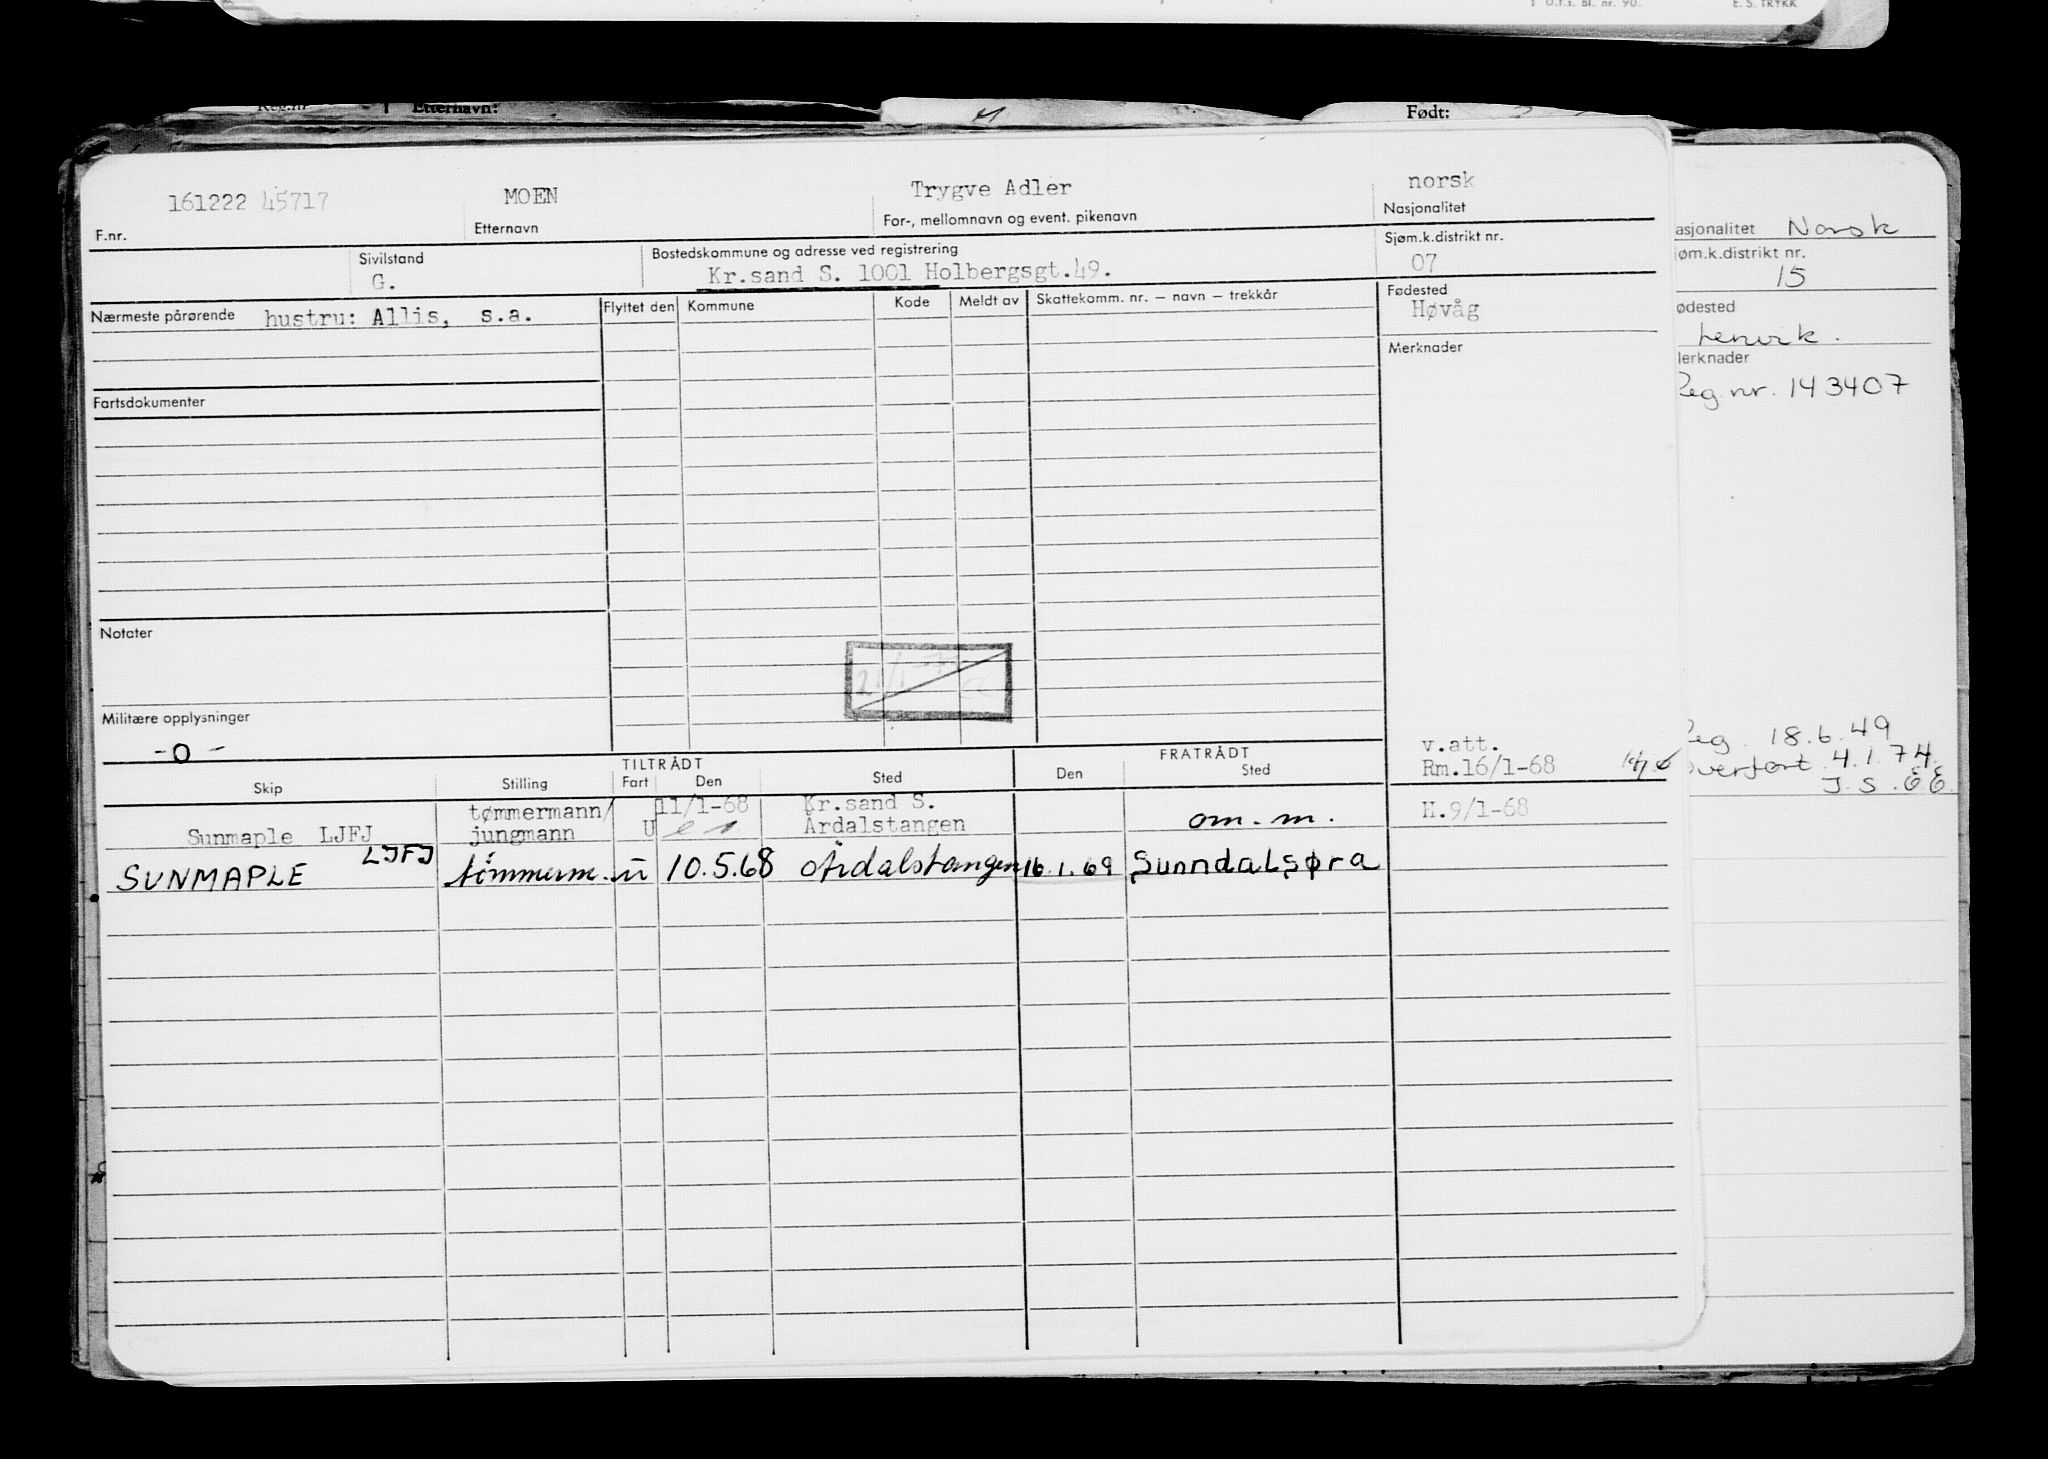 D.f.s. Bl. nr. 90. E. S. TRYKK
Reg.nr. Etternavn: Født:
161222 45717 MOEN Trygve Adler norsk
F.nr. Etternavn For-, mellomnavn og event. pikenavn Nasjonalitet
Sivilstand Bostedskommune og adresse ved registrering Sjøm.k.distrikt nr.
G. Kr.sand S. 1001 Holbergsgt.49. 07
Nærmeste pårørende hustru: Allis, s.a. Flyttet den Kommune Kode Meldt av Skattekomm. nr. – navn – trekkår Fødested
Høvåg
Merknader
Fartsdokumenter
Notater
Militære opplysninger
-0-
v.att.
Rm.16/1-68
TILTRÅDT FRATRÅDT
Skip Stilling Fart Den Sted Den Sted
tømmermann/ 11/1-68 Kr.sand S. H.9/1-68
Sunmaple LJFJ jungmann U Årdalstangen om. m.
SUNMAPLE LJFJ tömmerm. u 10.5.68 Årdalstangen 16.1.69 Sunndalsøra
asjonalitet Norsk
øm.k.distrikt nr.
15
ødested
Lenvik.
lerknader
Reg.nr. 143407
Reg. 18.6.49
Overført 4.1.74.
J.S.E.E.